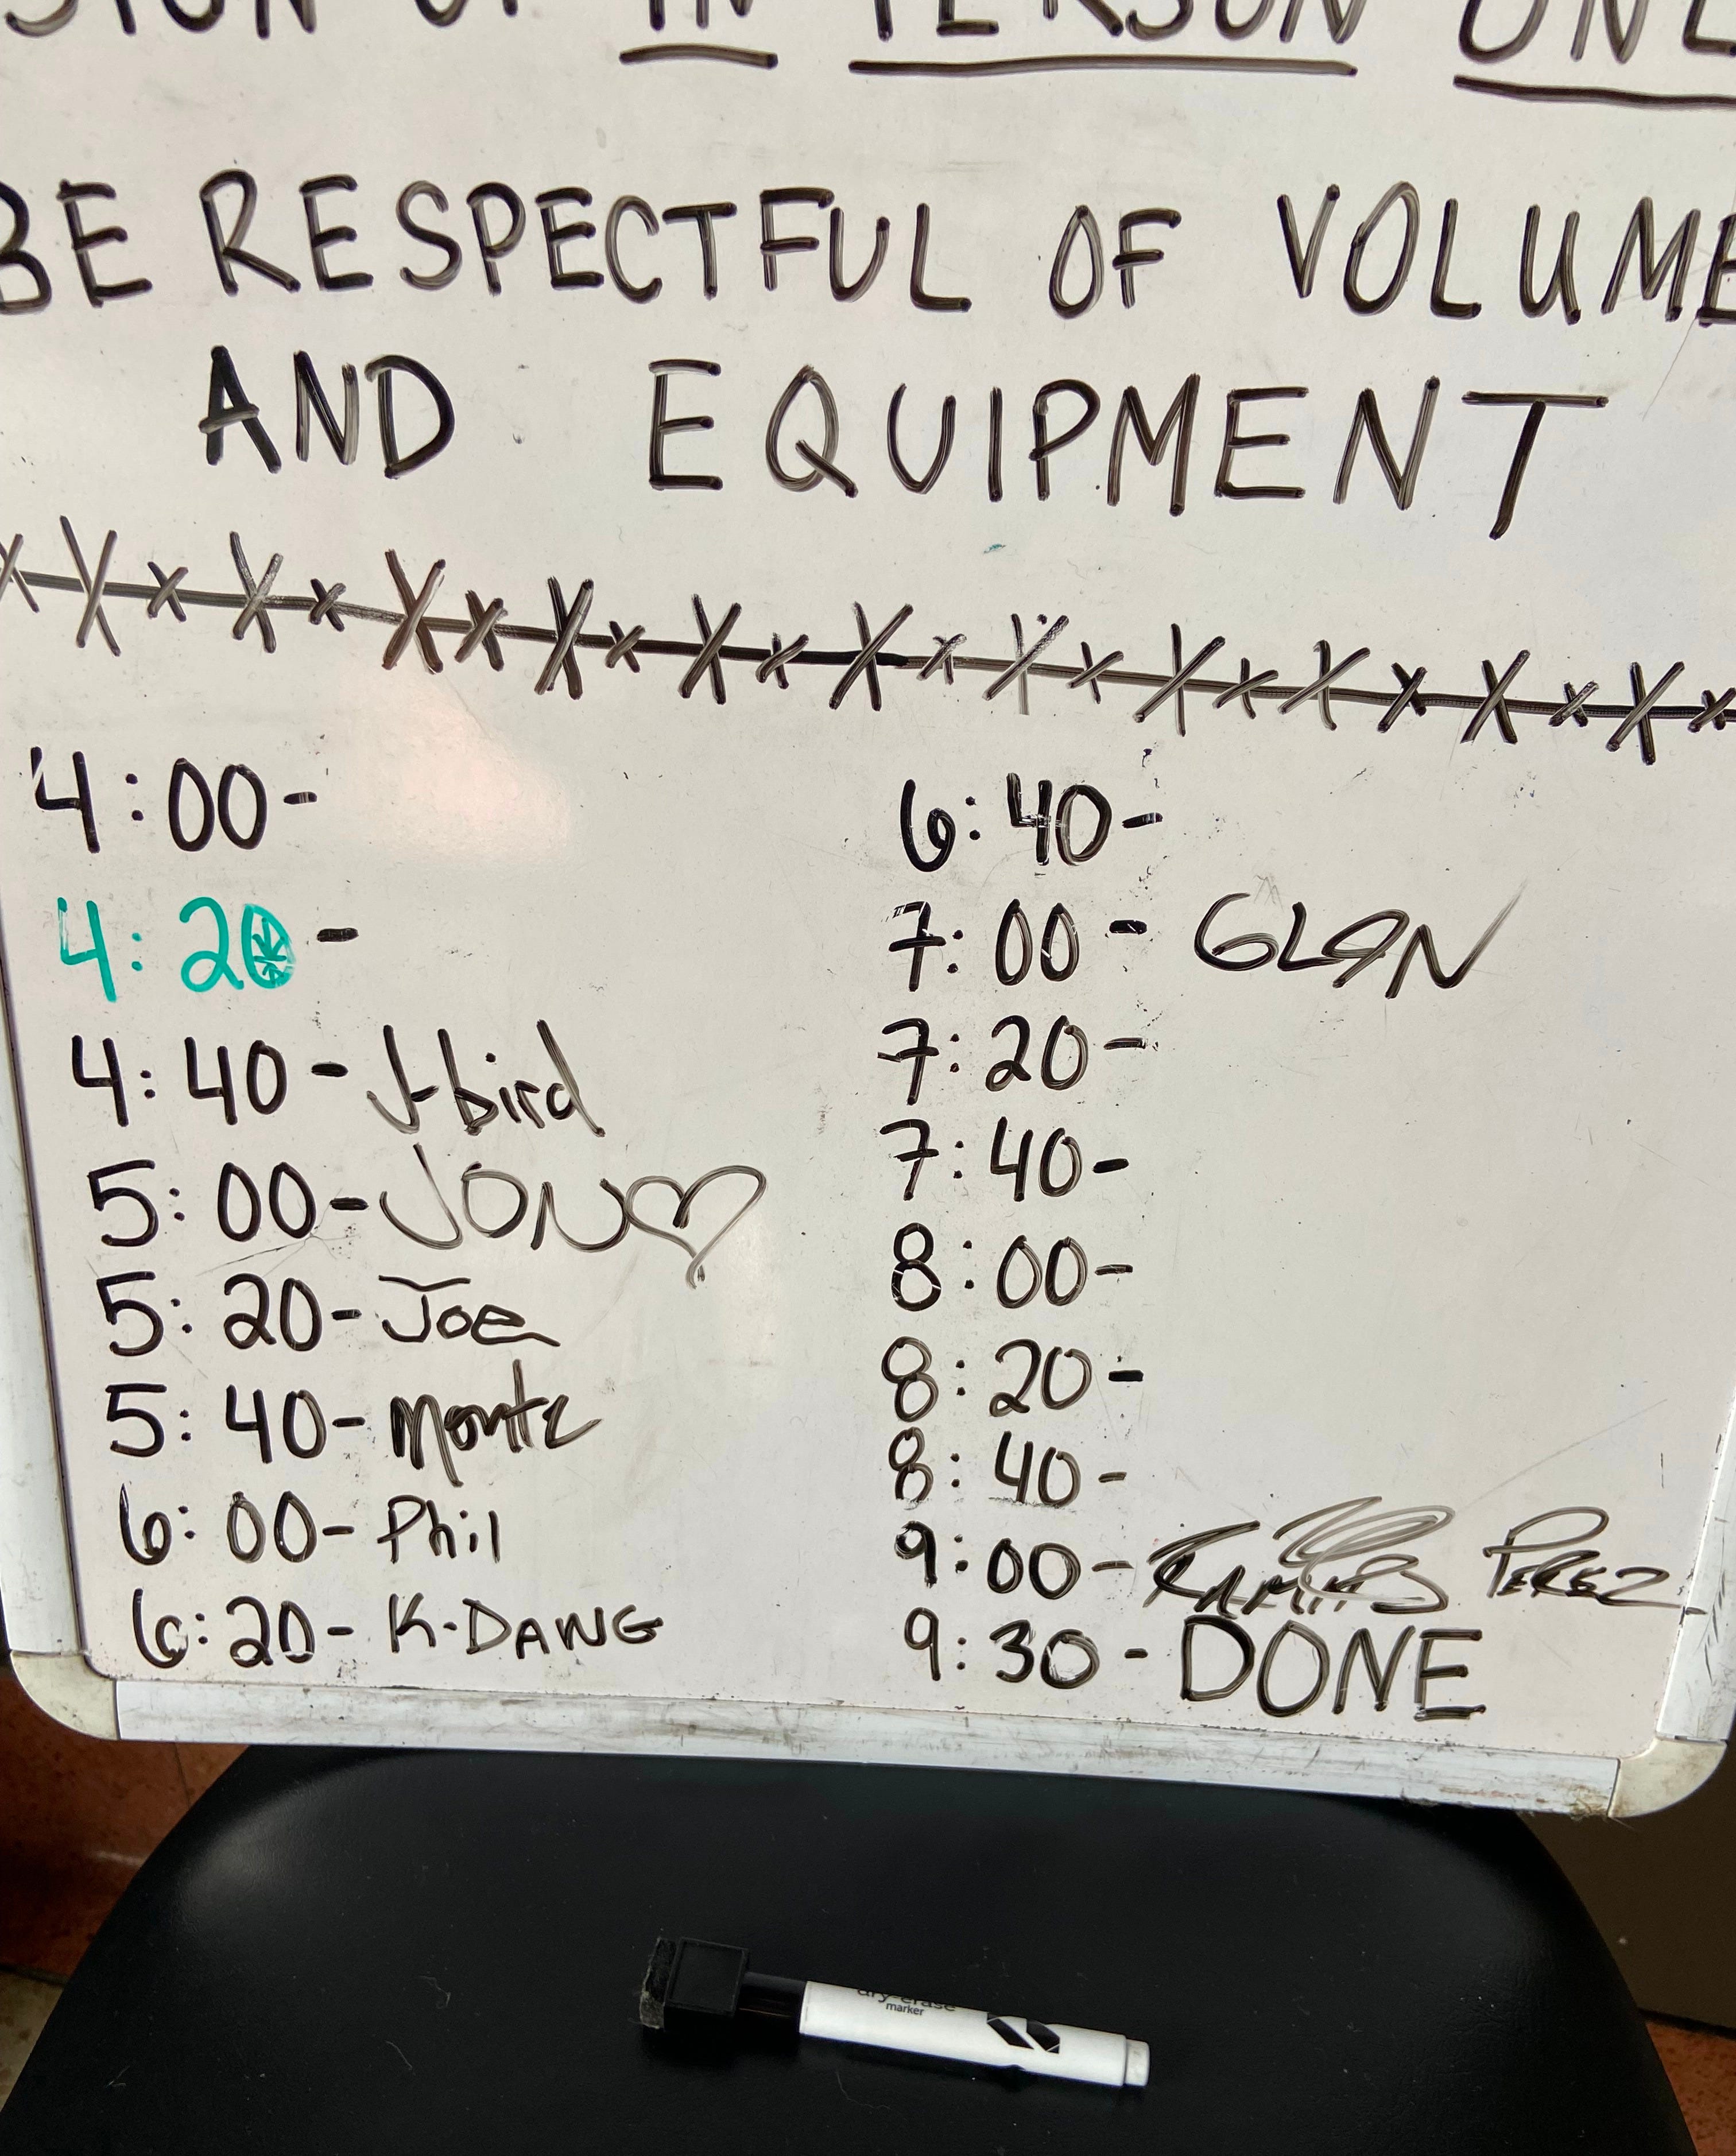 SIGN UP IN PERSON ONL
BE RESPECTFUL OF VOLUME
AND EQUIPMENT
4:00-
4:20 -
4:40 - J-bird
5:00 - JON♡
5:20 - Joe
5:40 - Monte
6:00 - Phil
6:20 - K-DAWG
6:40 -
7:00 - GLEN
7:20 -
7:40 -
8:00 -
8:20 -
8:40 -
9:00 - PEREZ
9:30 - DONE
dry-erase
marker